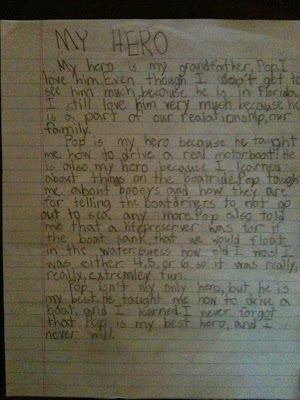 MY HERO
My hero is my grandfather, Pop. I
love him. Even though I don't get to
see him much because he is in Floriday,
I still love him very much because he
is a part of our realationship, our
family.
Pop is my hero because he taught
me how to drive a real motorboat! He
is also my hero because I learned
about things on the boatride. Pop taught
me about booeys and how they are
for telling the boatdrivers to not go
out to sea any more. Pop also told
me that a lifepreserver was for if
the boat sank that we would float
in the water. Guess how old I was! I
was either 4, 5, or 6 so it was really,
really, extremley fun.
Pop, isn't my only hero, but he is
my best. He taught me how to drive a
boat, and I learned I never forgot
that Pop is my best hero, and I
never will.